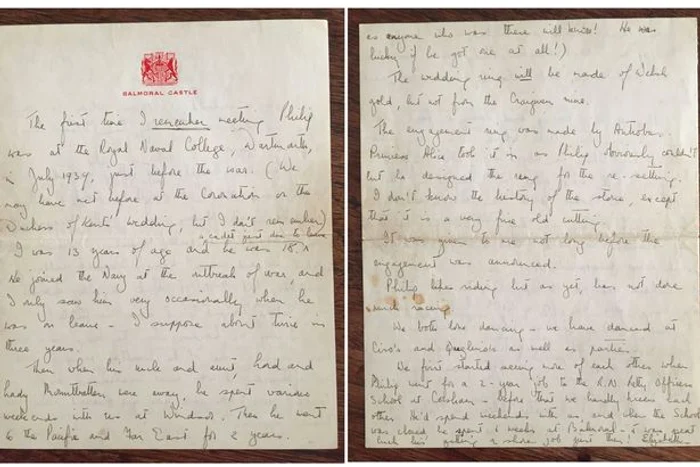 BALMORAL CASTLE
The first time I remember meeting Philip
was at the Royal Naval College, Dartmouth,
in July 1939, just before the war. (We
may have met before at the Coronation or the
Duchess of Kent's wedding, but I don't remember)
a cadet just due to leave
I was 13 years of age and he was 18 ^
He joined the Navy at the outbreak of war, and
I only saw him very occasionally when he
was on leave - I suppose about twice in
three years.
Then when his uncle and aunt Lord and
Lady Mountbatten were away, he spent various
weekends with us at Windsor. Then he went
to the Pacific and Far East for 2 years.
as anyone who was there will know! He was
lucky if he got one at all!)
The wedding ring will be made of Welsh
gold, but not from the Craigwen mine.
The engagement ring was made by Antrobus.
Princess Alice took it in as Philip obviously couldn't
but he designed the ring for the re-setting.
I don't know the history of the stone, except
that it is a very fine old cutting.
It was given to me not long before the
engagement was announced.
Philip likes riding but as yet, has not done
much racing.
We both love dancing - we have danced at
Ciro's and Quaglino's as well as parties.
We first started seeing more of each other when
Philip went for a 2-year job to the R.N. Petty Officers
School at Corsham - before that we hardly knew each
other. He'd spend weekends with us, and when the School
was closed he spent 6 weeks at Balmoral - it was great
luck his getting a shore job just then! Elizabeth.